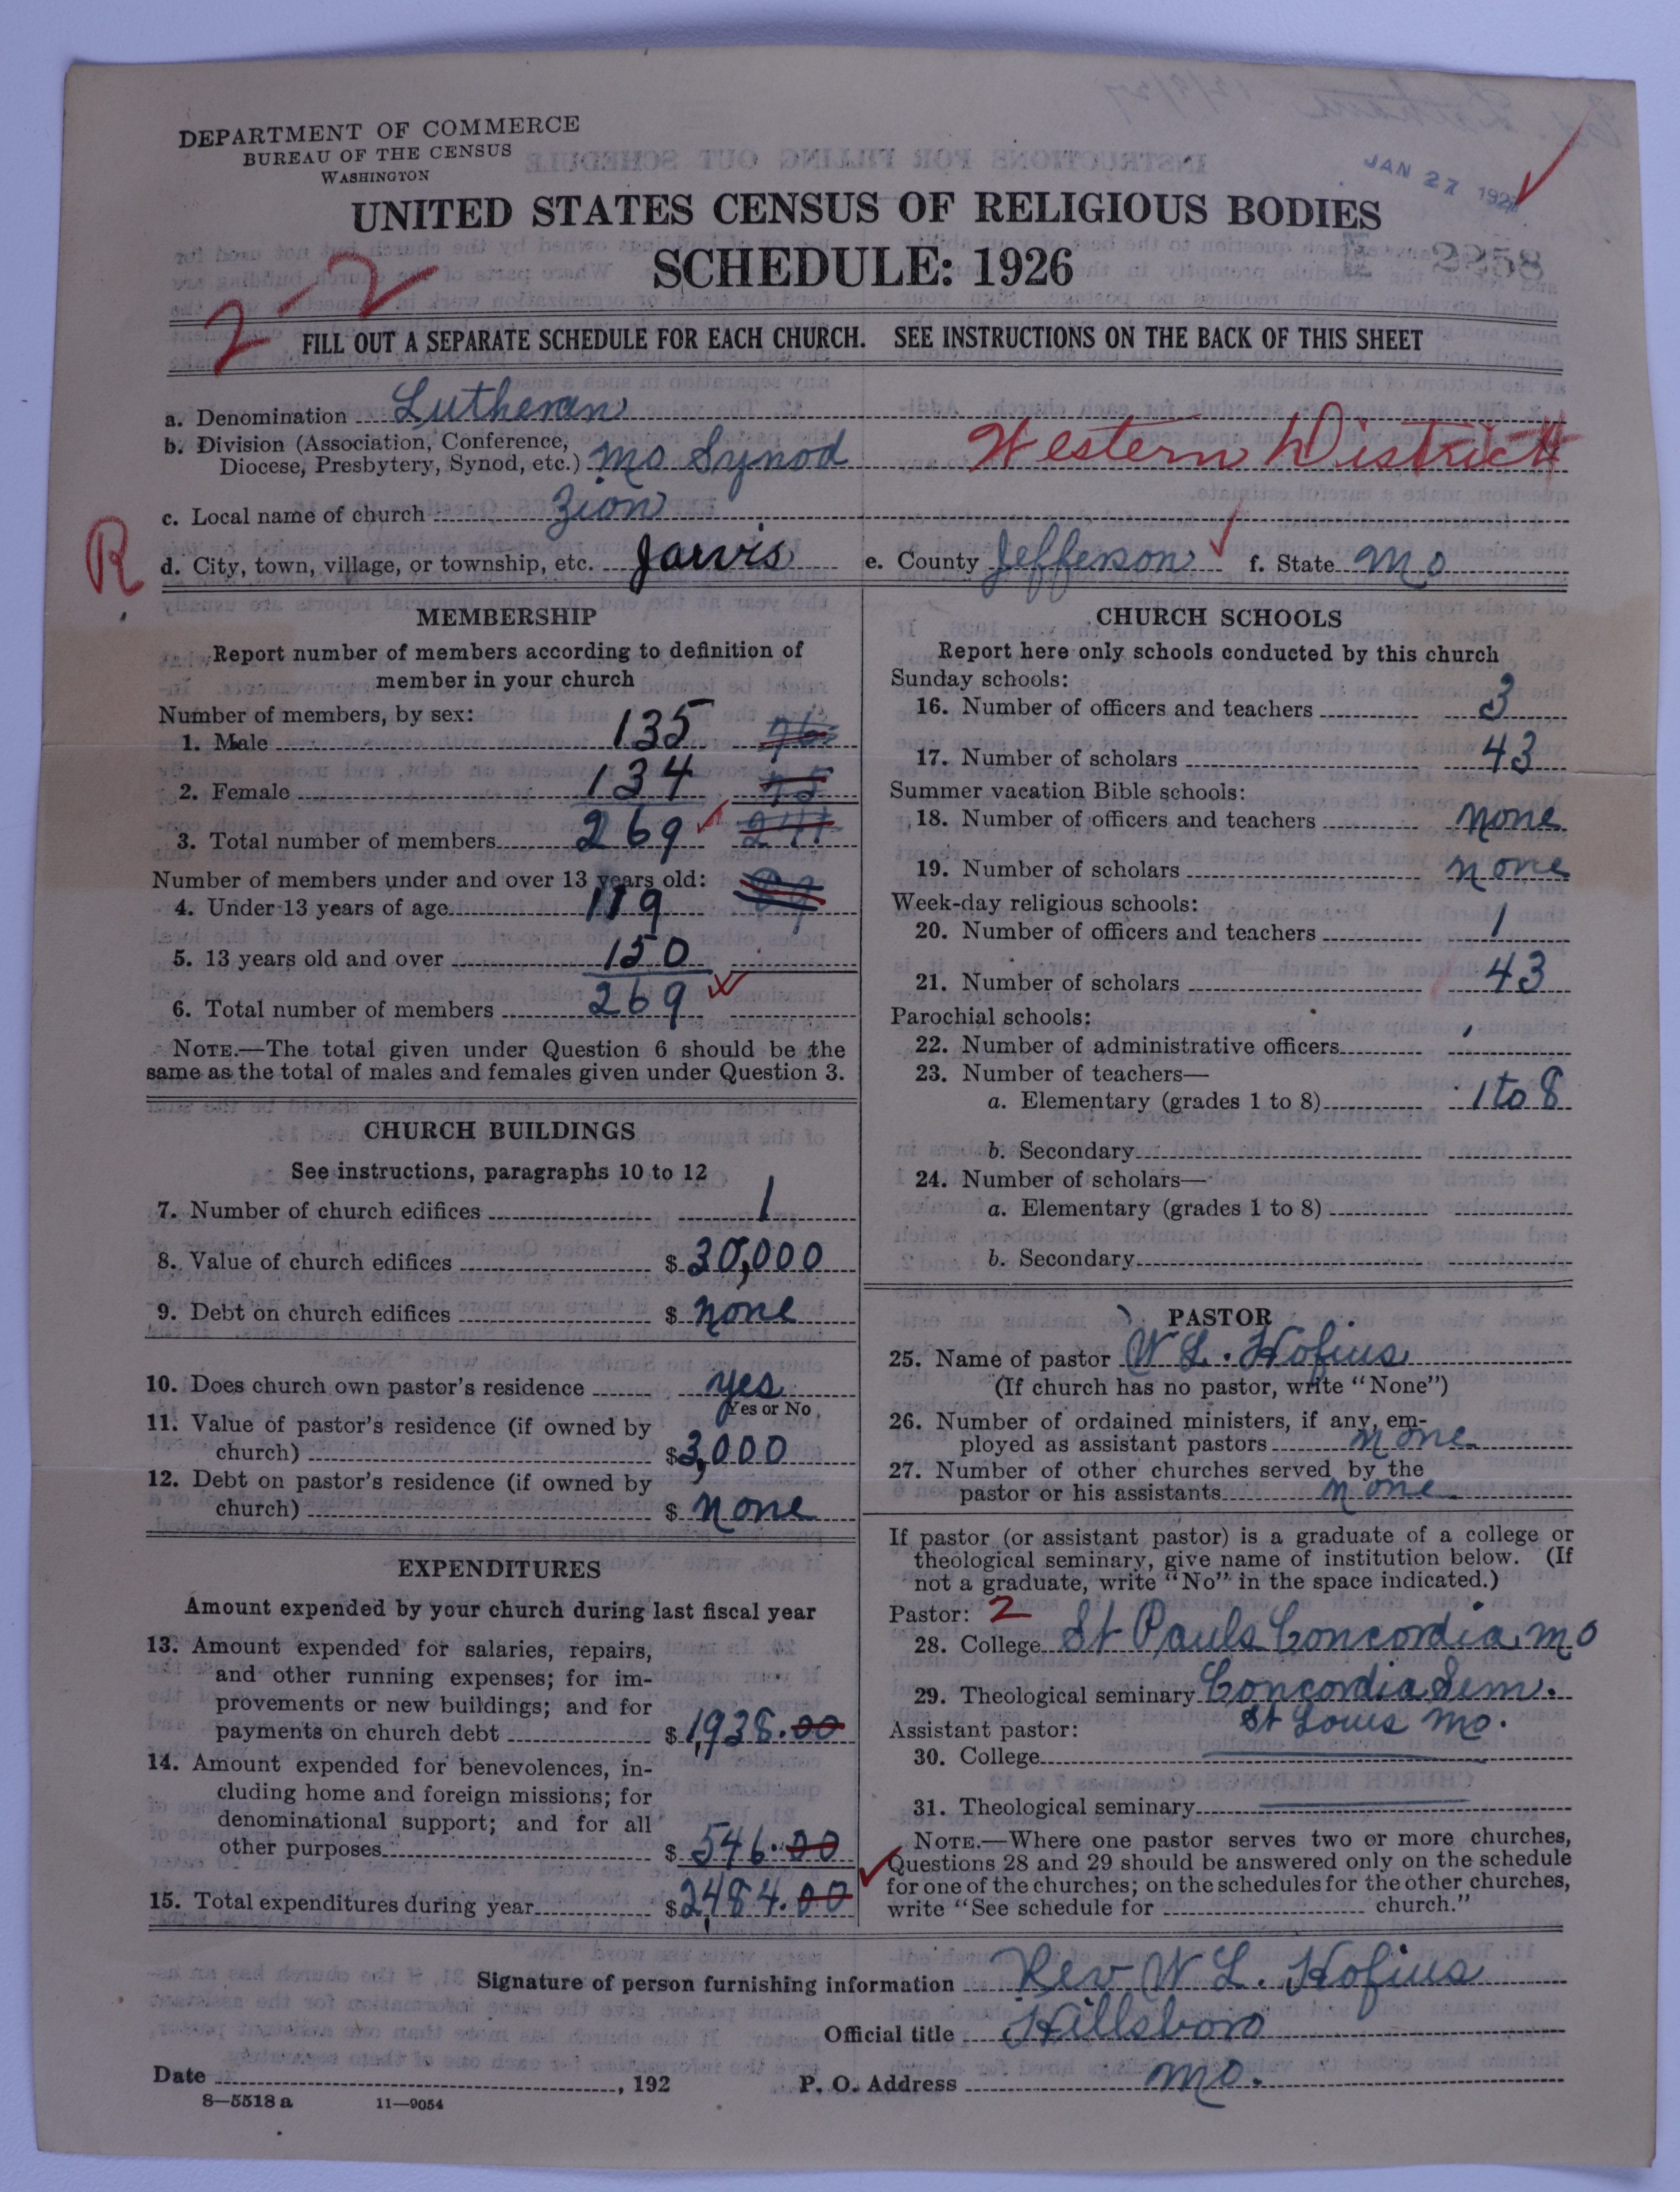 DEPARTMENT OF COMMERCE
BUREAU OF THE CENSUS
WASHINGTON
JAN 27 192
UNITED STATES CENSUS OF RELIGIOUS BODIES
SCHEDULE: 1926
2258
2-2
FILL OUT A SEPARATE SCHEDULE FOR EACH CHURCH. SEE INSTRUCTIONS ON THE BACK OF THIS SHEET
a. Denomination Lutheran
b. Division (Association, Conference,
Diocese, Presbytery, Synod, etc.) Mo Synod Western District
c. Local name of church Zion
R d. City, town, village, or township, etc. Jarvis e. County Jefferson f. State Mo
MEMBERSHIP
Report number of members according to definition of
member in your church
Number of members, by sex:
1. Male 135 76
2. Female 134 75
3. Total number of members 269 241
Number of members under and over 13 years old:
4. Under 13 years of age 119
5. 13 years old and over 150
6. Total number of members 269
NOTE.—The total given under Question 6 should be the
same as the total of males and females given under Question 3.
CHURCH BUILDINGS
See instructions, paragraphs 10 to 12
7. Number of church edifices 1
8. Value of church edifices $ 30,000
9. Debt on church edifices $ none
10. Does church own pastor's residence yes
Yes or No
11. Value of pastor's residence (if owned by
church) $ 3,000
12. Debt on pastor's residence (if owned by
church) $ none
EXPENDITURES
Amount expended by your church during last fiscal year
13. Amount expended for salaries, repairs,
and other running expenses; for im-
provements or new buildings; and for
payments on church debt $ 1,938.00
14. Amount expended for benevolences, in-
cluding home and foreign missions; for
denominational support; and for all
other purposes $ 546.00
15. Total expenditures during year $ 2,484.00
CHURCH SCHOOLS
Report here only schools conducted by this church
Sunday schools:
16. Number of officers and teachers 3
17. Number of scholars 43
Summer vacation Bible schools:
18. Number of officers and teachers none
19. Number of scholars none
Week-day religious schools:
20. Number of officers and teachers 1
21. Number of scholars 43
Parochial schools:
22. Number of administrative officers
23. Number of teachers—
a. Elementary (grades 1 to 8) 1 to 8
b. Secondary
24. Number of scholars—
a. Elementary (grades 1 to 8)
b. Secondary
PASTOR
25. Name of pastor W L. Hofius
(If church has no pastor, write "None")
26. Number of ordained ministers, if any, em-
ployed as assistant pastors none
27. Number of other churches served by the
pastor or his assistants none
If pastor (or assistant pastor) is a graduate of a college or
theological seminary, give name of institution below. (If
not a graduate, write "No" in the space indicated.)
Pastor: 2
28. College St Pauls Concordia, Mo
29. Theological seminary Concordia Sem.
Assistant pastor: St Louis Mo.
30. College
31. Theological seminary
NOTE.—Where one pastor serves two or more churches,
Questions 28 and 29 should be answered only on the schedule
for one of the churches; on the schedules for the other churches,
write "See schedule for church."
Signature of person furnishing information Rev W L. Hofius
Official title Hillsboro
Date , 192 P. O. Address Mo.
8—5518 a 11—9054